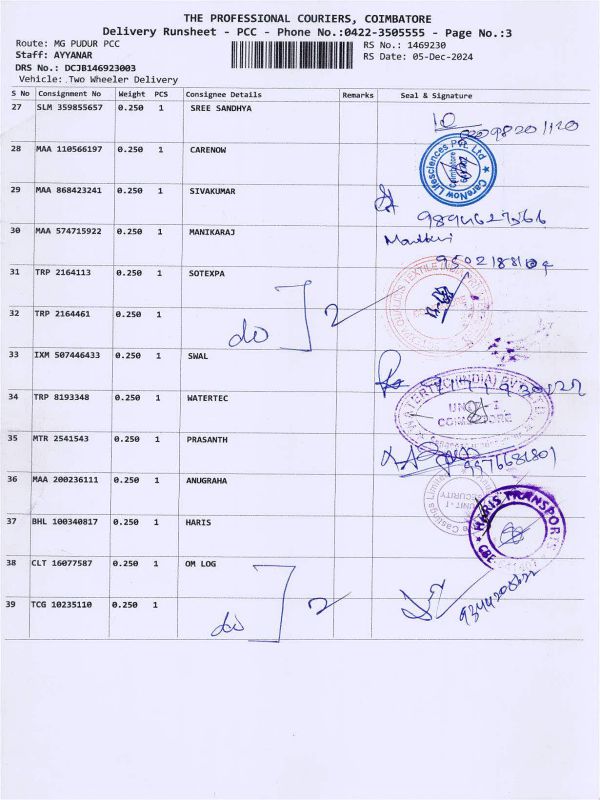 THE PROFESSIONAL COURIERS, COIMBATORE
Delivery Runsheet - PCC - Phone No.:0422-3505555 - Page No.:3
Route: MG PUDUR PCC
RS No.: 1469230
Staff: AYYANAR
RS Date: 05-Dec-2024
DRS No.: DCJB146923003
Vehicle: Two Wheeler Delivery
S No Consignment No Weight PCS Consignee Details Remarks Seal & Signature
27 SLM 359855657 0.250 1 SREE SANDHYA
10
28 MAA 110566197 0.250 1 CARENOW
CareNow Lifesciences Pvt. Ltd
Coimbatore
29 MAA 868423241 0.250 1 SIVAKUMAR
30 MAA 574715922 0.250 1 MANIKARAJ
9502188104
31 TRP 2164113 0.250 1 SOTEXPA
do ] 2
32 TRP 2164461 0.250 1
33 IXM 507446433 0.250 1 SWAL
34 TRP 8193348 0.250 1 WATERTEC
WATERTEC (INDIA) PVT LTD
UNIT - I
COIMBATORE
35 MTR 2541543 0.250 1 PRASANTH
9976681801
36 MAA 200236111 0.250 1 ANUGRAHA
UNIT - I
SECURITY
37 BHL 100340817 0.250 1 HARIS
HARIS TRANSPORTS
CBE
38 CLT 16077587 0.250 1 OM LOG
do ] 2
39 TCG 10235110 0.250 1